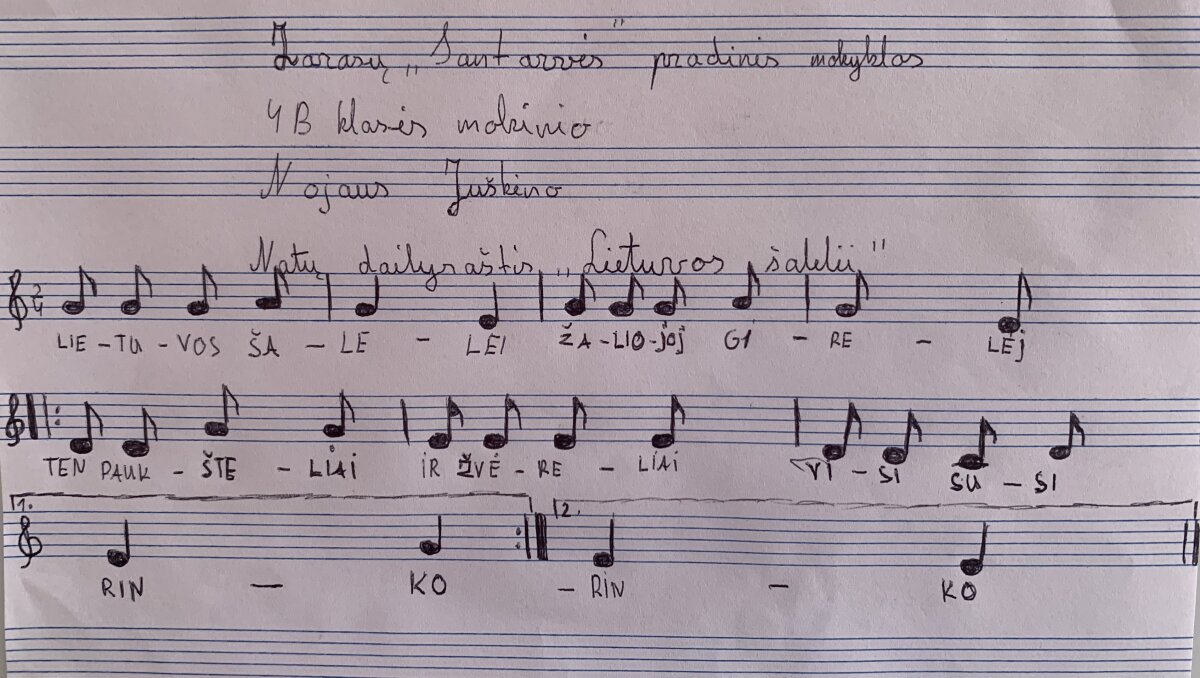 Zarasų „Santarvės" pradinės mokyklos
4B klasės mokinio
Nojaus Juškėno
Natų dailyraštis „Lietuvos šalelėj"
2 4
LIE - TU - VOS ŠA - LE - LĖJ ŽA - LIO - JOJ GI - RE - LĖJ
TEN PAUK - ŠTE - LIAI IR ŽVĖ - RE - LIAI VI - SI SU - SI
1. 2.
RIN - KO - RIN - KO